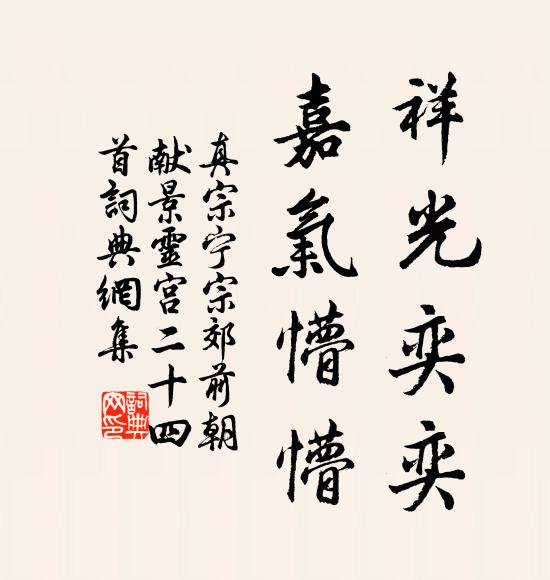 祥光奕奕
嘉氣懵懵
真宗宁宗郊前朝
献景靈宫二十四
首詞典網集
詞典网印